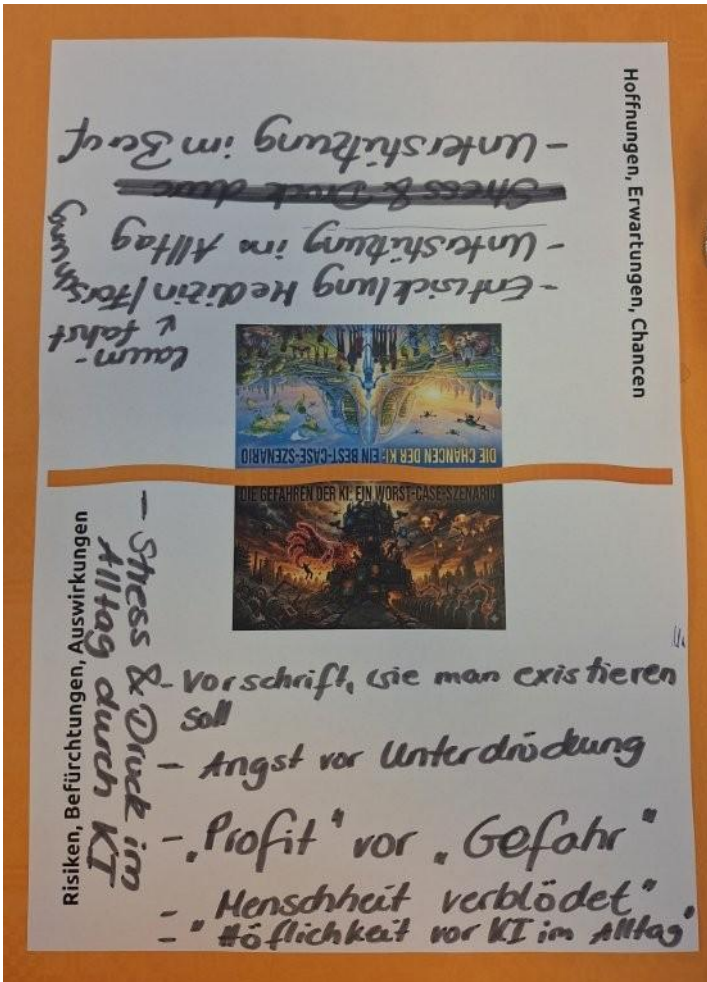 Hoffnungen, Erwartungen, Chancen
- Unterstützung im Beruf
- Stress & Druck durc
- Unterstützung im Alltag
- Entwicklung Medizin/Forschung
- Raumfahrt
DIE CHANCEN DER KI: EIN BEST-CASE-SZENARIO
DIE GEFAHREN DER KI: EIN WORST-CASE-SZENARIO
Risiken, Befürchtungen, Auswirkungen
- Stress & Druck im
Alltag durch KI
- Vorschrift, wie man existieren
soll
- Angst vor Unterdrückung
- „Profit" vor „Gefahr"
- Menschheit verblödet"
- "Höflichkeit vor KI im Alltag"